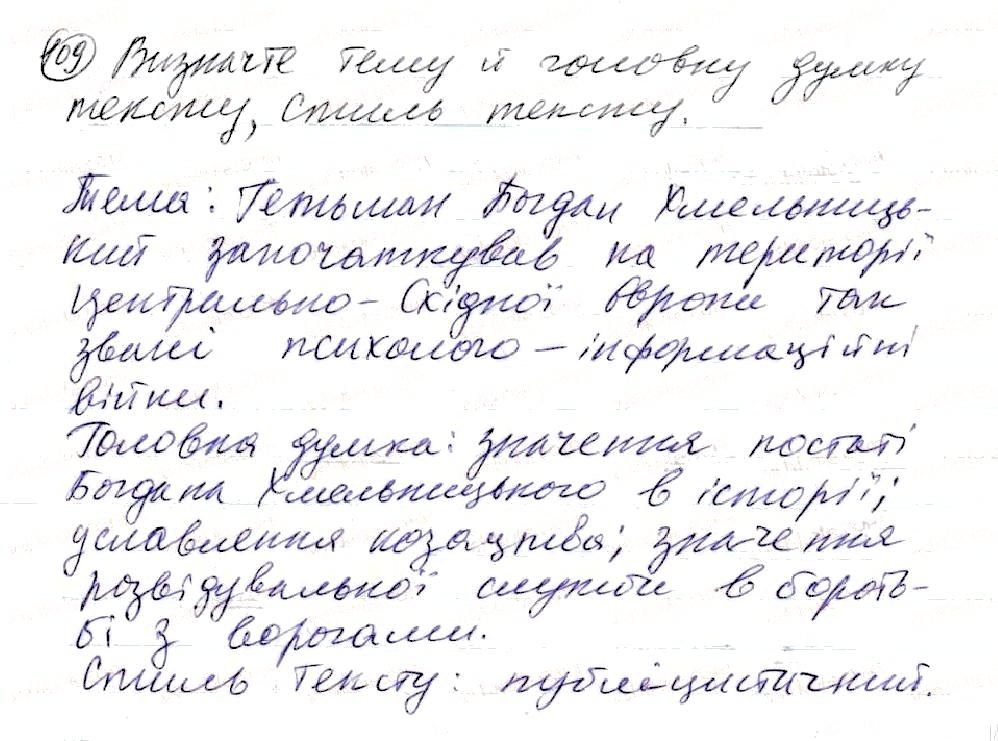 109 Визначте тему й головну думку
тексту, стиль тексту.
Тема: Гетьман Богдан Хмельниць-
кий започаткував на території
Центрально-Східної Європи так
звані психолого-інформаційні
війни.
Головна думка: значення постаті
Богдана Хмельницького в історії;
уславлення козацтва; значення
розвідувальної служби в бороть-
бі з ворогами.
Стиль тексту: публіцистичний.